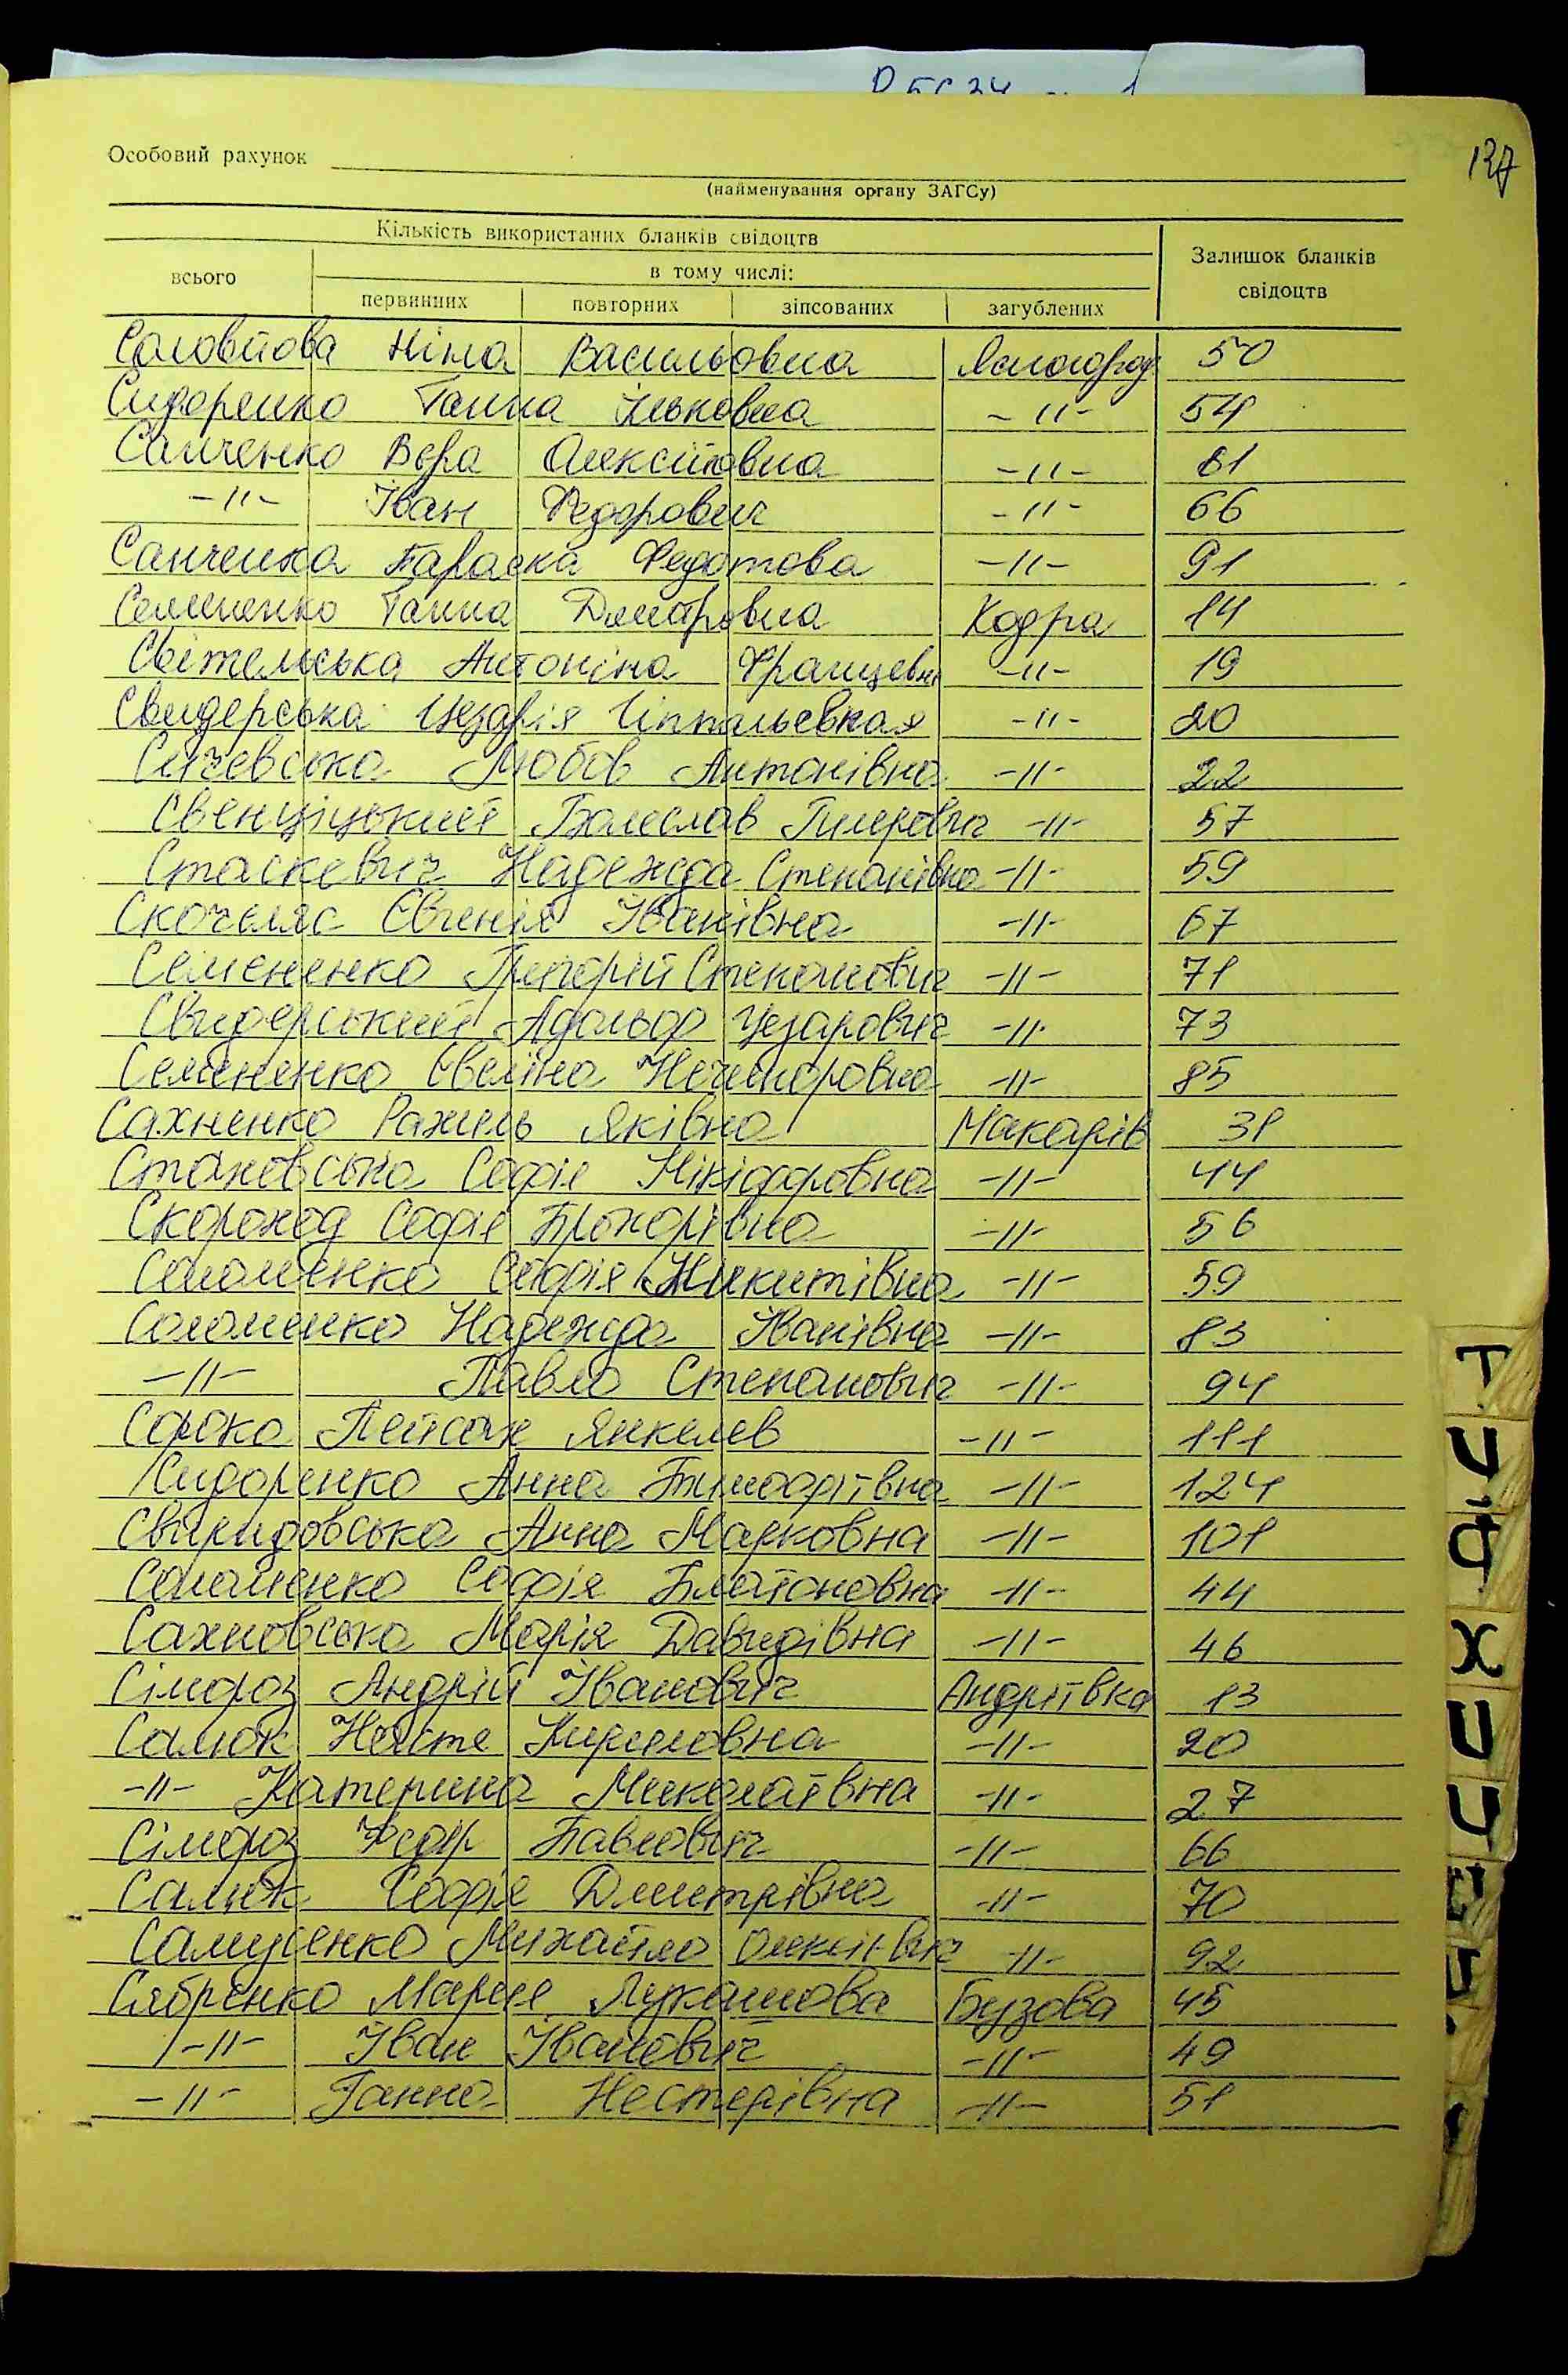 137
Особовий рахунок
(найменування органу ЗАГСу)
Кількість використаних бланків свідоцтв
Залишок бланків свідоцтв
всього
в тому числі:
первинних повторних зіпсованих загублених
Соловйова Ніна Васильовна Ясногород 50
Сидоренко Ганна Ільковна -"- 54
Санченко Вєра Олексіївна -"- 61
-"- Іван Федорович -"- 66
Санченка Параска Федотова -"- 91
Семененко Ганна Дмитровна Кодра 14
Світельська Антоніна Францевн -"- 19
Свидерська Цезарія -"- 20
Сичевська Любов Антонівна -"- 22
Свенціцький Болеслав -"- 57
Стаскевич Надежда Степанівна -"- 59
Скочеляс Євгенія Іванівна -"- 67
Семененко Григорій Степанович -"- 71
Свидерський Адольф Цезарович -"- 73
Семененко Євеліна Нечипоровна -"- 85
Сахненко Рахиль Яківна Макарів 31
Стаховська Софія Нікіфоровна -"- 44
Скороход Софія Прохорівна -"- 56
Соломенко Софія Никитівна -"- 59
Соломенко Надежда Іванівна -"- 83
-"- Павло Степанович -"- 94
Сорока Пейсах Янкелев -"- 111
Сидоренко Анна Тимофіївна -"- 124
Свиридовська Анна Марковна -"- 101
Соломенко Софія Платоновна -"- 44
Сахновська Марія Давидівна -"- 46
Сімороз Андрій Іванович Андріївка 13
Салюк Настя Кириловна -"- 20
-"- Катерина Миколаївна -"- 27
Сімороз Федір Павлович -"- 66
Салюк Софія Дмитрівна -"- 70
Самусенко Михайло Олексійвич -"- 92
Сябренко Мария Лукашова Бузова 45
-"- Іван Іванович -"- 49
-"- Ганна Нестерівна -"- 51
Т
У
Ф
Х
Ц